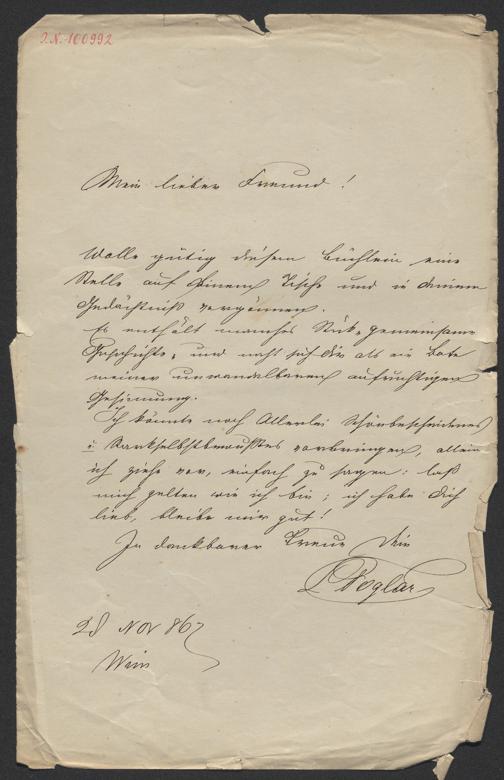 I.N. 100992
Mein lieber Freund!
Wolle gütig diesem Büchlein eine
Stelle auf Deinem Tische und in deinem
Gedächtniß vergönnen.
Es enthält manches Stük gemeinsamer
Geschichte, und naht sich Dir als ein Bote
meiner unwandelbaren aufrichtigen
Gesinnung.
Ich könnte noch Allerlei Schönbescheidenes
Starkselbstbewußtes vorbringen, allein
ich ziehe vor, einfach zu sagen: laß
mich gelten wie ich bin; ich habe Dich
lieb, bleibe mir gut!
In dankbarer Treue Dein
Foglar
28 Nov 867
Wien